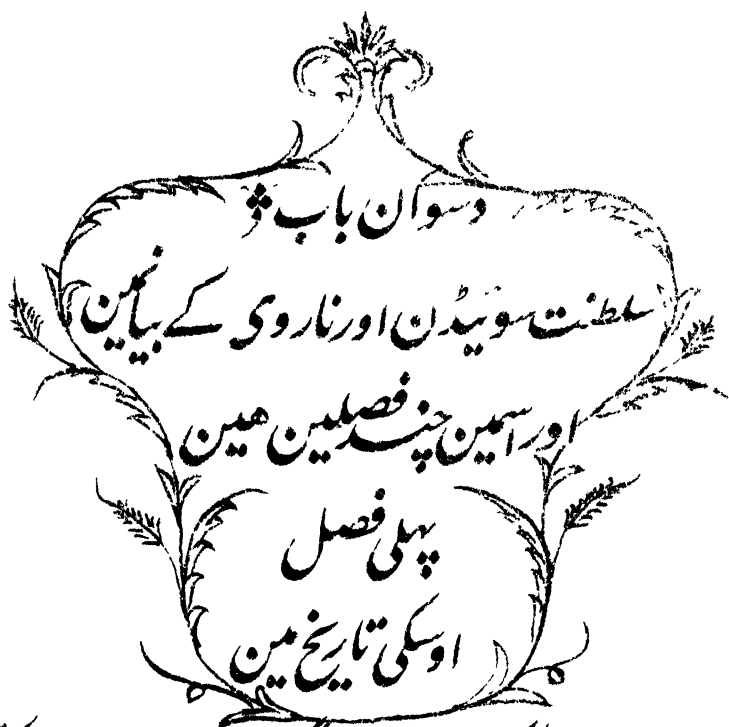 دسوان باب
سلطنت سوئیڈن اور ناروی کے بیانمین
اور اسمین چند فصلین ھین
پہلی فصل
اوسکی تاریخ مین